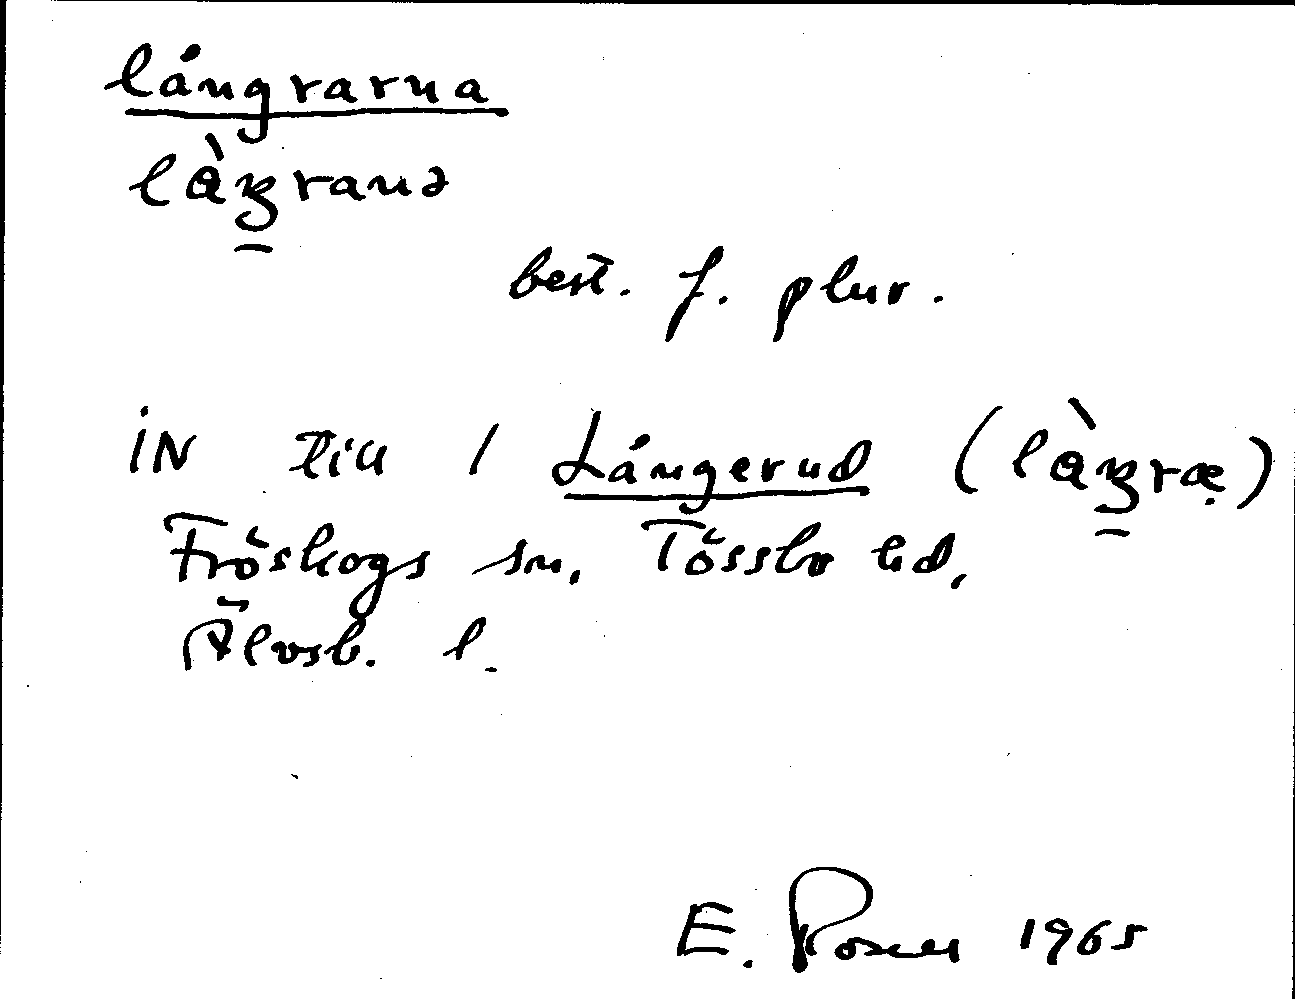 långrarna
làꞑ̱ranə
best. f. plur.
IN till 1 Långerud (làꞑ̱ræ̣)
Fröskogs sn, Tössbo hd,
Älvsb. l.
E. 1965